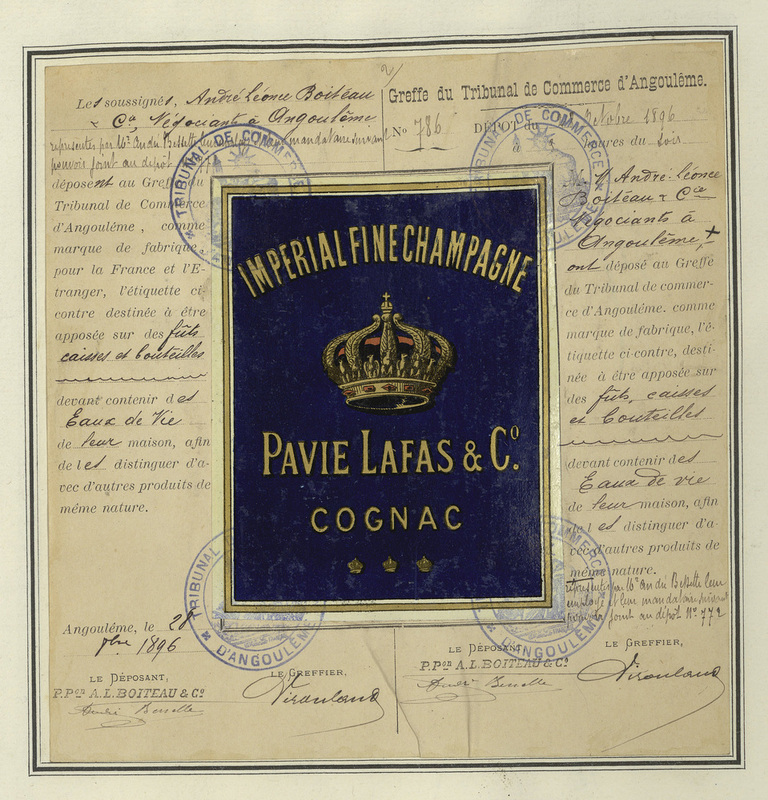 Les soussignés, André Léonce Boiteau
& Cie, Négociants à Angoulême
représentés par Mr André Bessette mandataire suivant
pouvoir joint au dépôt
déposent au Greffe du
Tribunal de Commerce
d'Angoulême, comme
marque de fabrique,
pour la France et l'E-
tranger, l'étiquette ci-
contre destinée à être
apposée sur des fûts
caisses et bouteilles
devant contenir des
Eaux de Vie
de leur maison, afin
de les distinguer d'a-
vec d'autres produits de
même nature.
Angoulême, le 28
7bre 1896
LE DÉPOSANT,
P.PON A.L. BOITEAU & Co
LE GREFFIER,
IMPERIAL FINE CHAMPAGNE
PAVIE LAFAS & Co.
COGNAC
Greffe du Tribunal de Commerce d'Angoulême.
No 786 DÉPOT du Octobre 1896
heures du soir
M. André-Léonce
Boiteau & Cie
Négociants à
Angoulême, +
ont déposé au Greffe
du Tribunal de commer-
ce d'Angoulême. comme
marque de fabrique, l'é-
tiquette ci-contre, desti-
née à être apposée sur
des fûts, caisses
et bouteilles
devant contenir des
Eaux de vie
de leur maison, afin
de les distinguer d'a-
vec d'autres produits de
même nature.
pouvoir joint au dépôt No 772
LE DÉPOSANT,
P.PON A.L. BOITEAU & Co
LE GREFFIER,
TRIBUNAL DE COMMERCE
TRIBUNAL DE COMMERCE
TRIBUNAL
D'ANGOULÊME
COMMERCE
D'ANGOULÊME